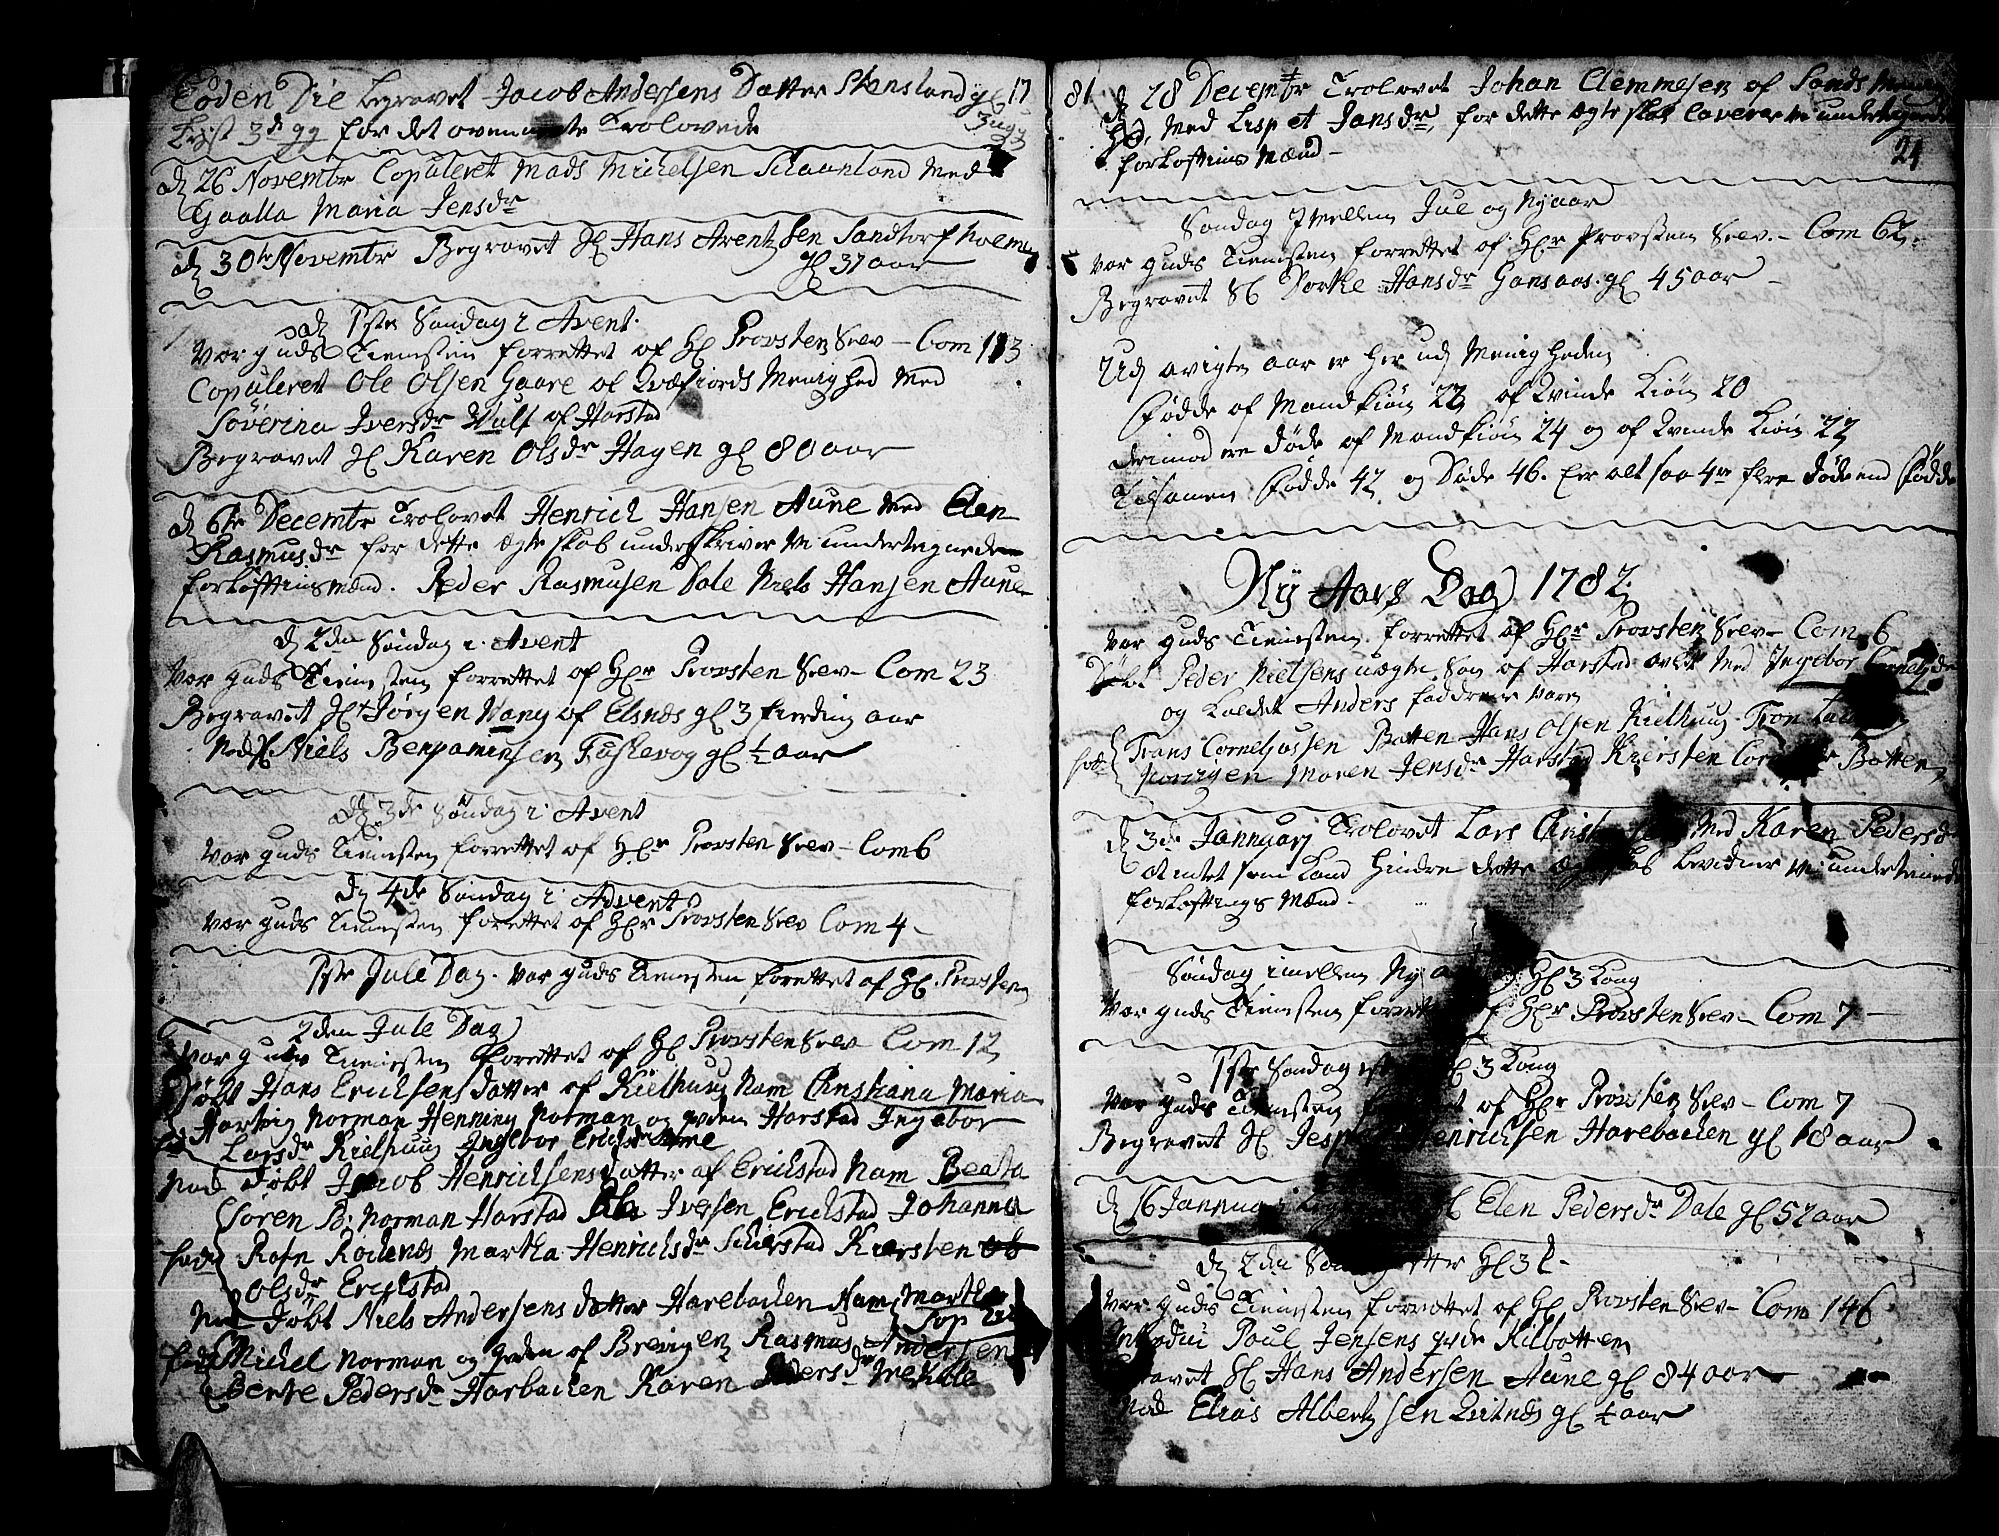 Eoden Die begravet Jacob Andersens Datter Stensland gl 17
lyst 3de gg for det ovenmelte Trolovede 3 ugr
d 26 Novembr Copuleret Mads Michelsen Schaanland Med
Gaalla Maria Jensdr
d 30te Novembr Begravet Sl Hans Arentzsen Sandtorfholmen
gl 37 aar
d 1ste Søndag i Avent.
Vor guds Tienesten forrettet af Hl Provsten Srev – Com 113
Copuleret Ole Olsen Gaare af Qvæfiords Menighed Med
Söverina Iversdr Wulf af Harstad
Begravet Sl Karen Olsdr Hagen gl 80 aar
d 6te Decembr Trolovet Henrich Hansen Aune Med Elen
Rasmusdr for dette ægteskab underskriver Vi undertegnede
forloftningsmænd. Peder Rasmusen Dale Niels Hansen Aune
d 2den Søndag i Avent
Vor guds Tienesten forrettet af Hr Provsten Srev – Com 23
Begravet Sl Jørgen Wang of Elsnds gl 3 fierding aar
Nock Sl Niels Benjaminsen Fuskevog gl ½ aar
d 3de Søndag i Avent
Vor guds Tienesten forrettet af Hr Provsten Srev – Com 6
d 4de Søndag i Advent
Vor guds Tienesten forrettet af Hr Provsten Srev Com 4 –
1ste Jule Dag. Vor guds Tienesten forrettet af Hl Provsten
2den Jule Dag
Vor guds Tienesten forrettet af Hl Provsten Srev Com 12
Døbt Hans Erichsens datter af Kielhuug Nam Christiana Maria
Hartvig Norman Henning Norman og gvden Harstad Ingebor
Larsdr Kielhuug Ingebor Erichsdr Aune
Nock Døbt Jacob Henrichsens datter af Erichstad Nam Beata
Søren B: Norman Harstad Iversen Erichstad Johanna
fad: Rafn Röckends Martha Henrichsdr Schierstad Kiersten
Olsdr Erichstad
Nock Døbt Niels Andersens datter Harebacken Nam Martha
Sop
fad: Michel Norman og gvden af Brevigen Rasmus Andersen
Berite Pedersdr Harbacken Karen Pedersdr
81 d 28 Decembr Trolovet Johan Clemmesen af Sands
Med Lispet Jansdr, for dette ægteskab Caverer vi undertegnede
forloftnings Mænd – 24
Søndag Imellem Jul og Nyaar
Vor guds Tienesten forrettet af Hr Provsten Srev. – Com 62
Begravet Sl Dorthe Hansdr Gansaas. gl 45 aar –
Udj avigte aar er her udj Menigheden
Fødde af Mandkiön 22 af Qvinde Kiön 20
derimod ere døde af Mandkiön 24 og af Qvinde Kiön 22
Tilsamen Fødde 42 og Døde 46. Er altsaa 4re flere døde end Fødde
Ny Aars Dag 1782
Vor guds Tienesten forrettet af Hr Provsten Srev – Com 6
Døbt Peder Nielsens uægte Søn af Harstad avlet Med Ingebor Cornelisdr
og kaldet Anders faddrene Varen
fad: Frans Corneliussen Batten Hans Olsen Kielhuug Tron
Maren Jensdr Harstad Kiersten Batten
d 3de Jannuarj Trolovet Lars Christ Med Karen Pedersdr
At intet som kand hindre dette ægteskab bevidner vi undertegnede
forloftnings Mænd –
Søndag imellem Ny Hl 3 Kong
Vor guds Tienesten forrettet af Hr Provsten Srev – Com 7 –
1ste Søndag efter Hl 3 Kong
Vor guds Tienesten forrettet af Hr Provsten Srev – Com 7
Begravet Sl Jesper Henrichsen Harebacken gl 18 aar
d 16 Jannuarj Begravet Sl Elen Pedersdr Dale gl 52 aar
d 2den Søndag efter Hl 3 K –
Vor guds Tienesten forrettet af Hl Provsten Srev – Com 146
Introduc Poul Jensens qvde Kilbotten
Begravet Sl Hans Andersen Aune gl 84 aar –
Nock Elias Albertzsen gl ½ aar